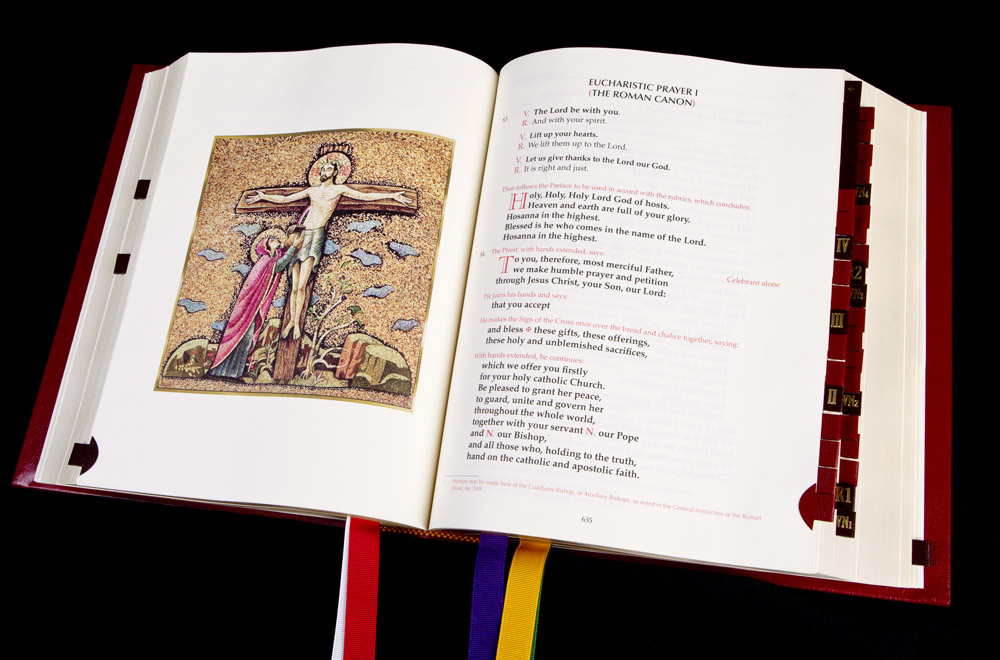 EUCHARISTIC PRAYER I
(THE ROMAN CANON)
83. V. The Lord be with you.
R. And with your spirit.
V. Lift up your hearts.
R. We lift them up to the Lord.
V. Let us give thanks to the Lord our God.
R. It is right and just.
Then follows the Preface to be used in accord with the rubrics, which concludes:
Holy, Holy, Holy Lord God of hosts.
Heaven and earth are full of your glory.
Hosanna in the highest.
Blessed is he who comes in the name of the Lord.
Hosanna in the highest.
84. The Priest, with hands extended, says:
To you, therefore, most merciful Father,
we make humble prayer and petition
through Jesus Christ, your Son, our Lord:
Celebrant alone
He joins his hands and says:
that you accept
He makes the Sign of the Cross once over the bread and chalice together, saying:
and bless ✠ these gifts, these offerings,
these holy and unblemished sacrifices,
With hands extended, he continues:
which we offer you firstly
for your holy catholic Church.
Be pleased to grant her peace,
to guard, unite and govern her
throughout the whole world,
together with your servant N. our Pope
and N. our Bishop,*
and all those who, holding to the truth,
hand on the catholic and apostolic faith.
Mention may be made here of the Coadjutor Bishop, or Auxiliary Bishops, as noted in the General Instruction of the Roman
Missal, no. 149.
635
IV
III
II
VN2
K1
VN1